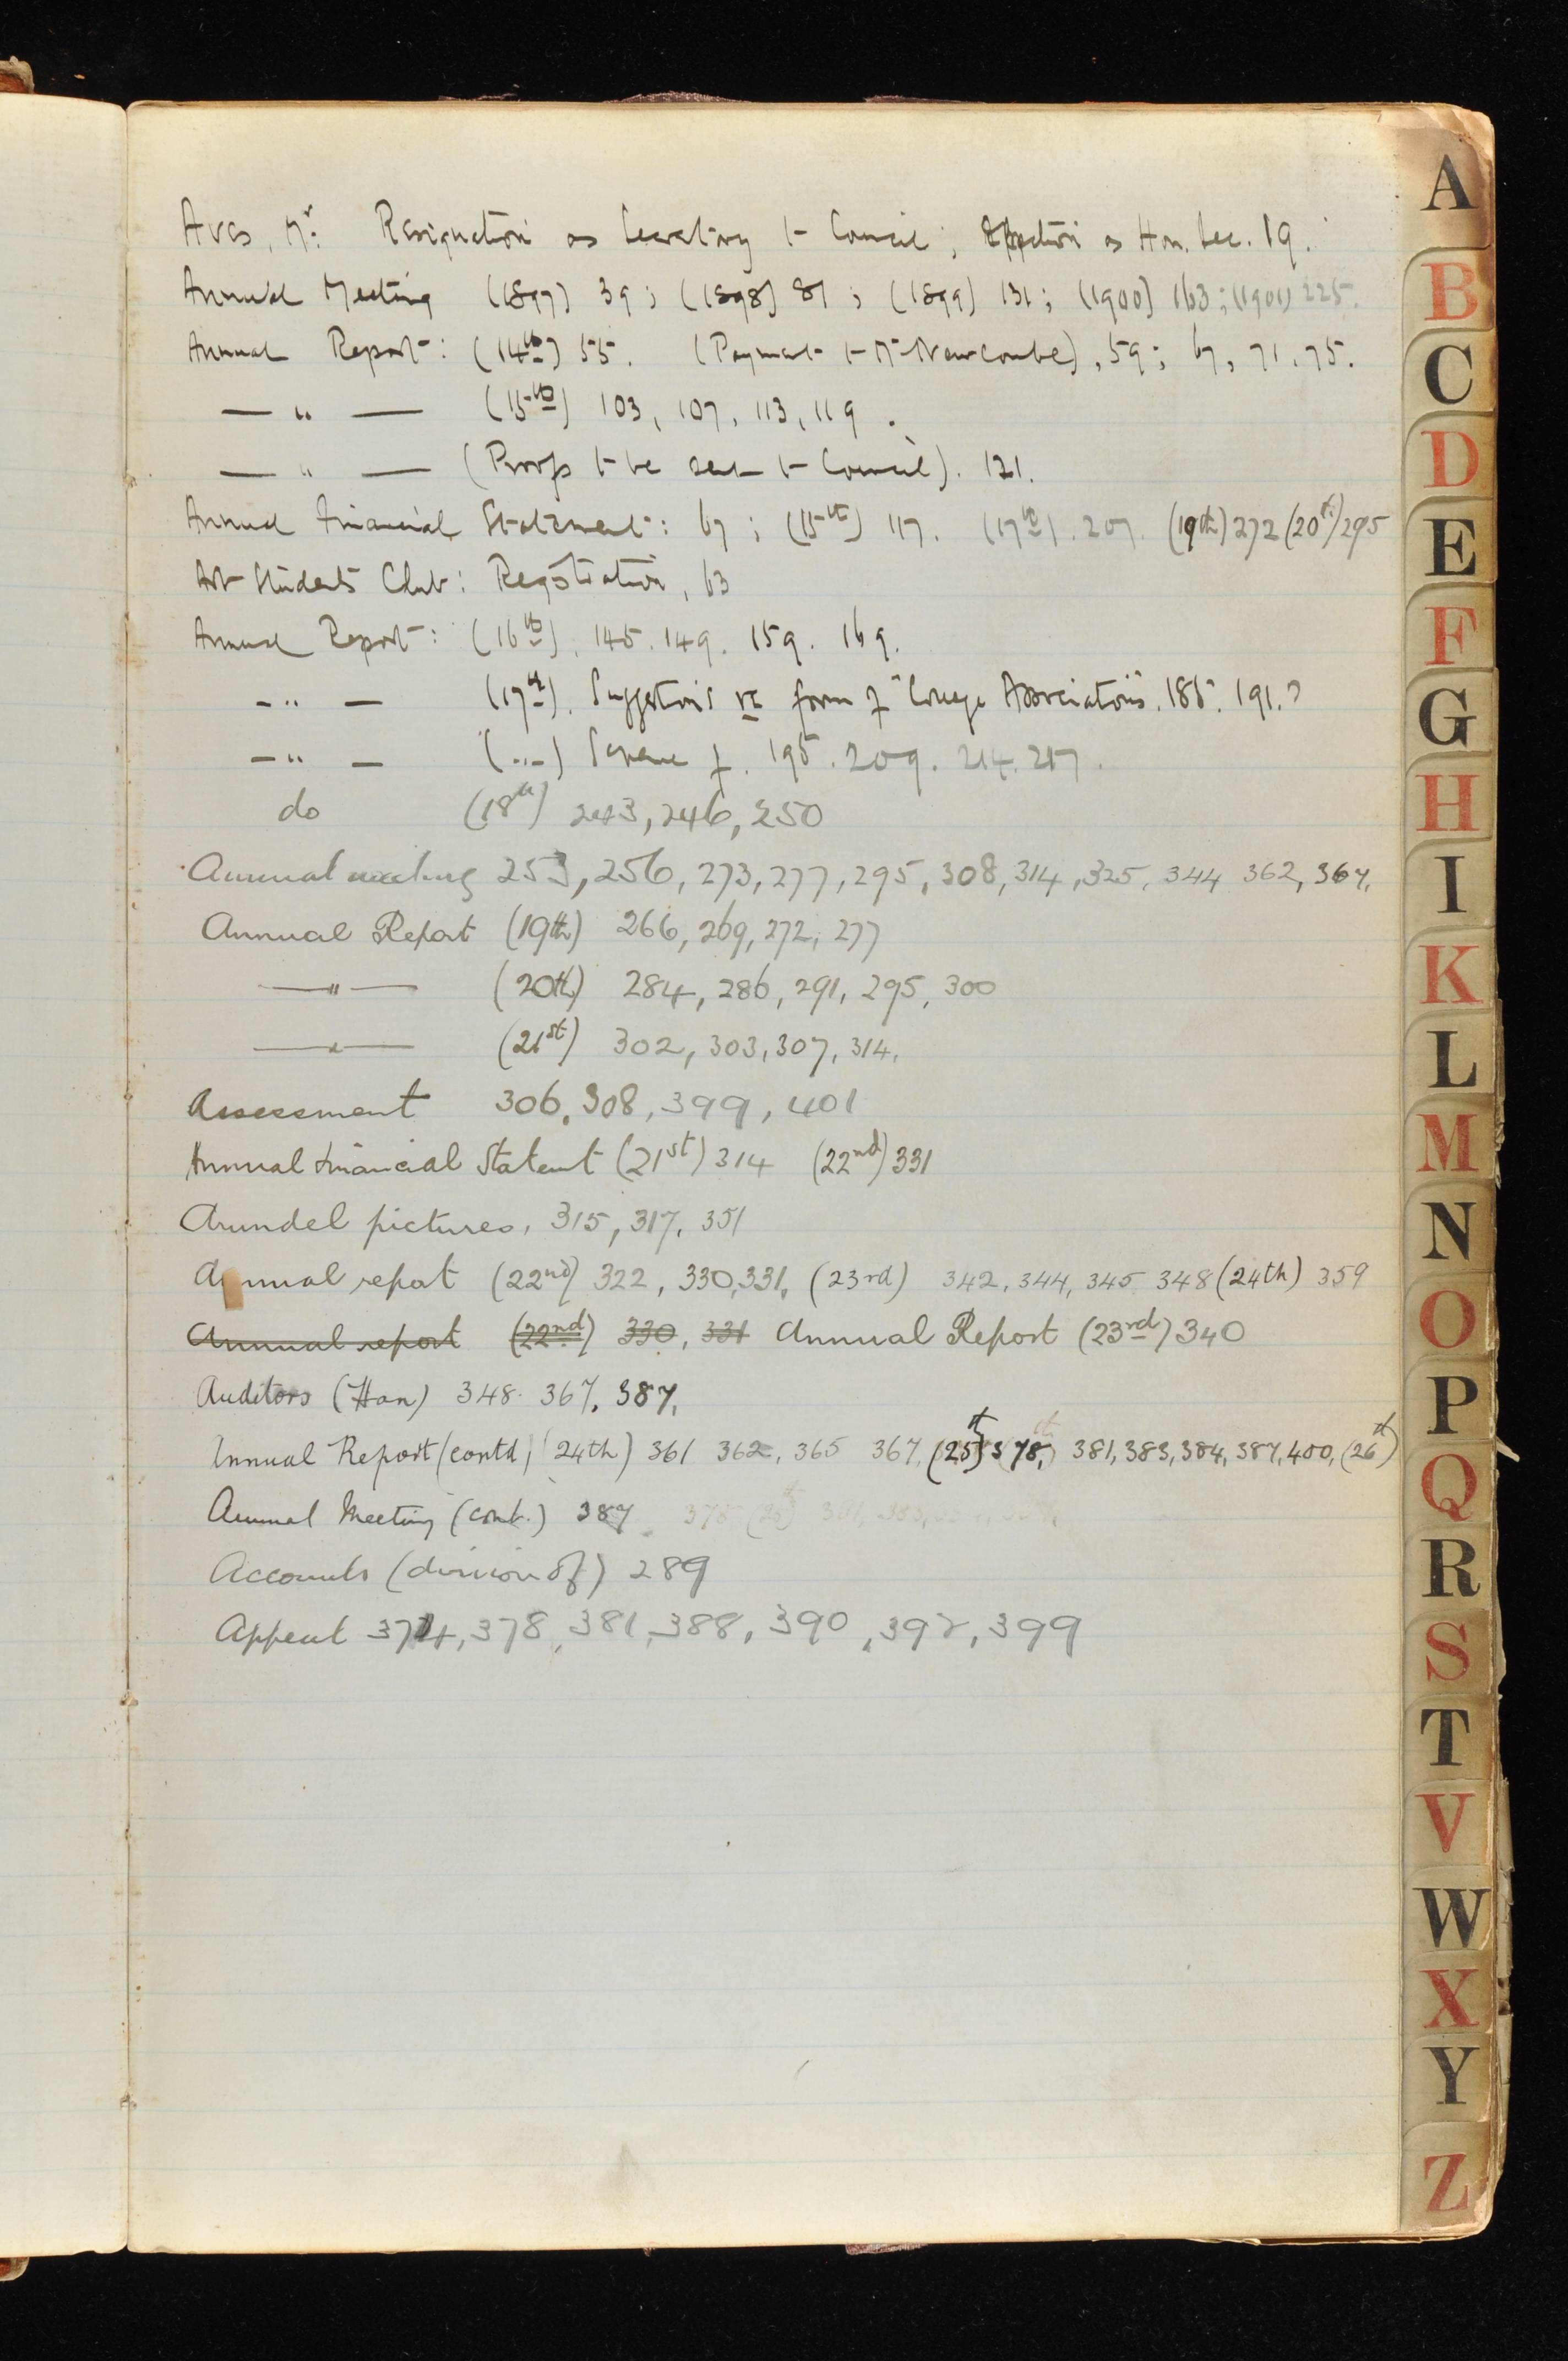 Aves, Mr: Resignation as Secretary to Council; as Hon. Sec. 19.
Annual Meeting (1897) 39; (1898) 81; (1899) 131; (1900) 163; (1901) 225.
Annual Report: (14th) 55. (Payment to Mr Newcombe), 59; 67, 71, 75.
— " — (15th) 103, 107, 113, 119.
— " — (Proofs to be sent to Council). 121.
Annual Financial Statement: 67; (15th) 117. (17th). 207. (19th) 272 (20th) 295
Art Students Club: Registration, 63
Annual Report: (16th). 145. 149. 159. 169.
- " - (17th). Suggestions re form of "College Associations". 185. 191.?
- " - (-"-) of. 195. 209. 214. 217.
do (18th) 243, 246, 250
Annual meeting 253, 256, 273, 277, 295, 308, 314, 325, 344 362, 367,
Annual Report (19th) 266, 269, 272, 277
—"— (20th) 284, 286, 291, 295, 300
—"— (21st) 302, 303, 307, 314,
Assessment 306, 308, 399, 401
Annual Financial Statemt (21st) 314 (22nd) 331
Arundel pictures, 315, 317, 351
Annual report (22nd) 322, 330, 331, (23rd) 342, 344, 345 348 (24th) 359
Annual report (22nd) 330, 331 Annual Report (23rd) 340
Auditors (Hon) 348. 367, 387,
Annual Report (contd) (24th) 361 362, 365 367, (25th) 378, 381, 383, 384, 387, 400, (26th)
Annual Meeting (cont.) 387
Accounts (division of) 289
Appeal 374, 378, 381, 388, 390, 392, 399
A
B
C
D
E
F
G
H
I
K
L
M
N
O
P
Q
R
S
T
V
W
X
Y
Z